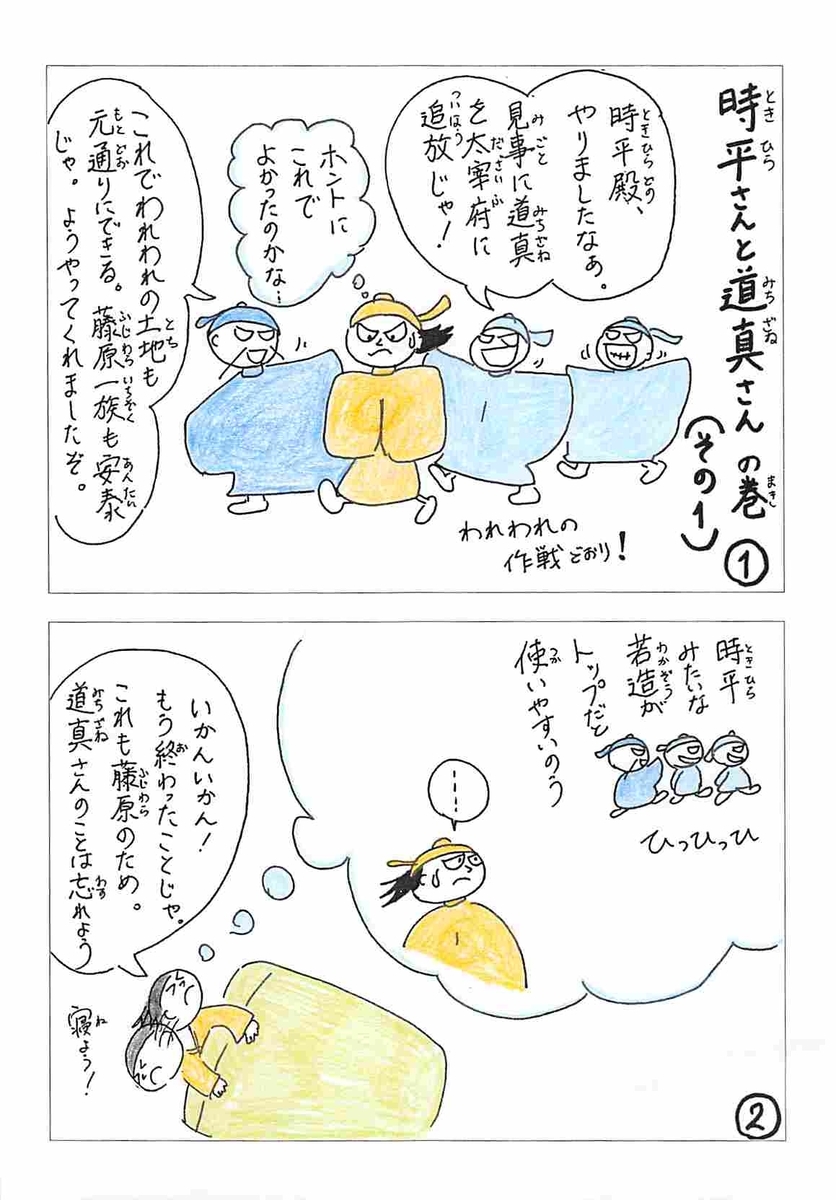 時平さんと道真さんの巻
(その1)
①
時平殿、
やりましたなぁ。
見事に道真
を太宰府に
追放じゃ！
ホントに
これで
よかったのかな…
これでわれわれの土地も
元通りにできる。藤原一族も安泰
じゃ。ようやってくれましたぞ。
われわれの
作戦どおり！
時平
みたいな
若造が
トップだと
使いやすいのう
ひっひっひ
……
いかんいかん！
もう終わったことじゃ。
これも藤原のため。
道真さんのことは忘れよう
寝よう！
②